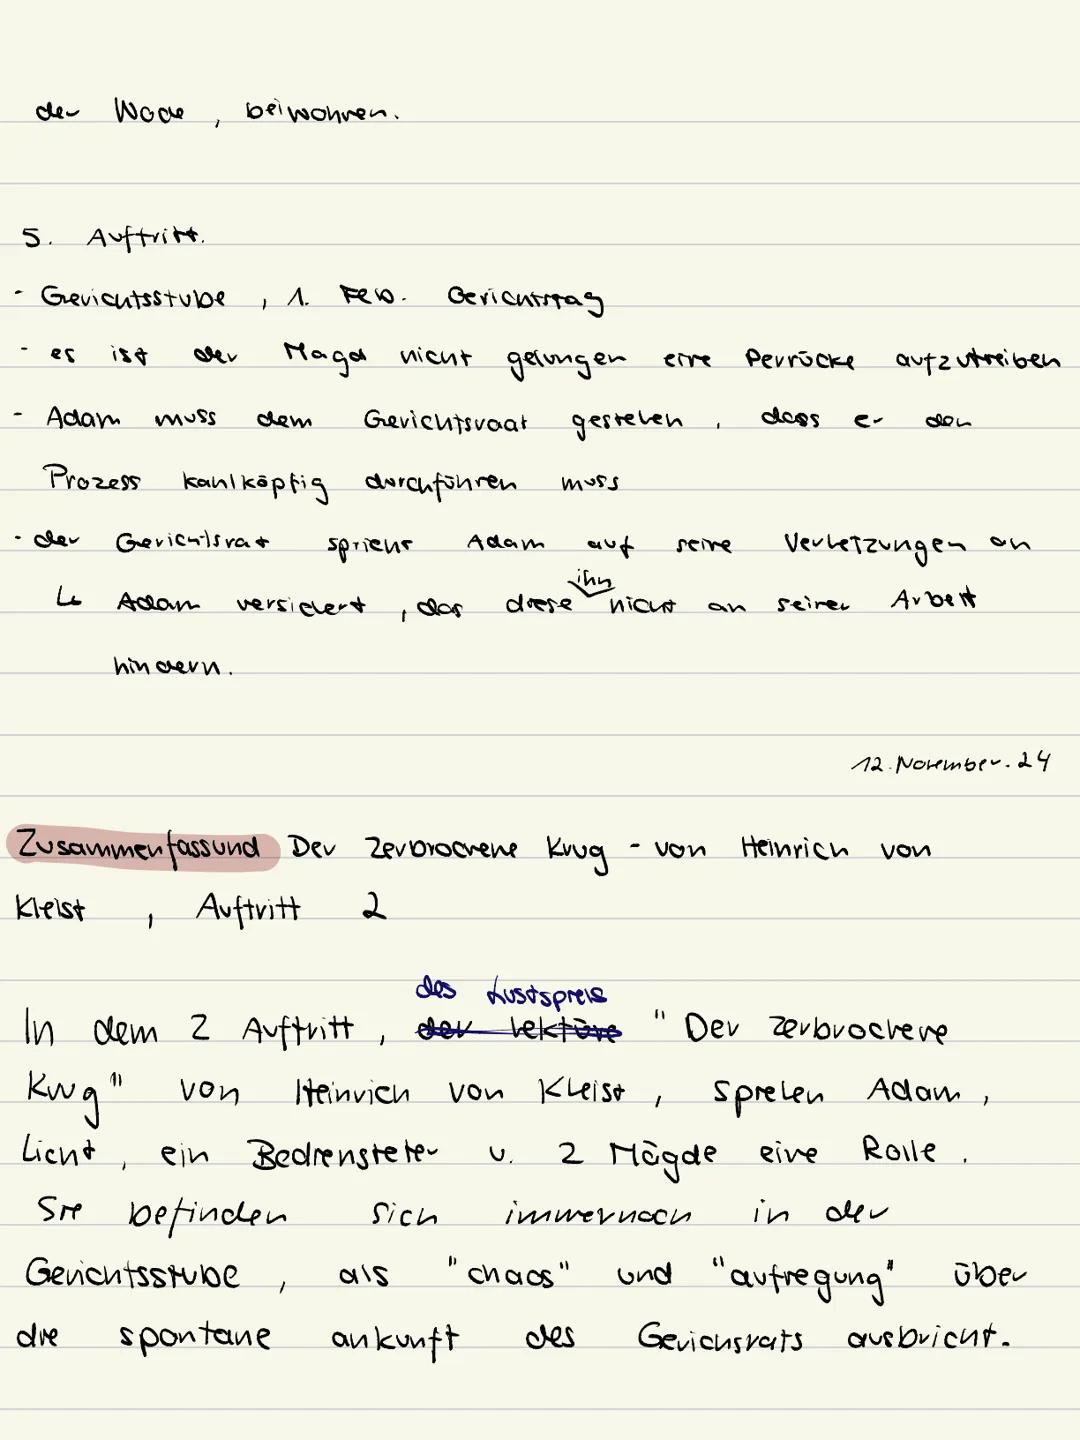 der Woche, beiwohnen.
5. Auftritt.
- Gerichtsstube, 1. Feb. Gerichtstag
- es ist der Magd nicht gelungen eine Perrücke aufzutreiben
- Adam muss dem Gerichtsraat gestehen, dass er den
Prozess kahlköpfig durchführen muss
- der Gerichtsrat spricht Adam auf seine Verletzungen an
ihn
↳ Adam versichert, das diese nicht an seiner Arbeit
hindern.
12. November. 24
Zusammenfassund Der zerbrochene Krug - von Heinrich von
Kleist, Auftritt 2
des Lustspiels
In dem 2 Auftritt, der Lektüre "Der zerbrochene
Krug" von Heinrich von Kleist, spielen Adam,
Licht, ein Bediensteter u. 2 Mägde eine Rolle.
Sie befinden sich immernoch in der
Gerichtsstube, als "chaos" und "aufregung" über
die spontane ankunft des Gerichsrats ausbricht.